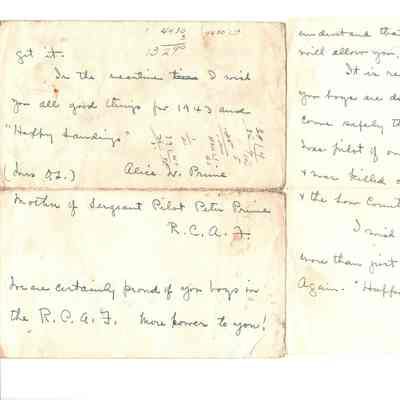 4430
3
13290
get it.
In the meantime I wish
you all good things for 1943 and
"Happy Landings"
Alice W. Prime
Mother of Sergeant Pilot Peter Prime
R.C.A.F.
We are certainly proud of you boys in
the R.C.A.F. More power to you!
understand that
will allow you,
It is re
you boys are do
come safely th
was pilot of on
+ was killed
+ the Low Count
I wish
more than just
Again. "Happ